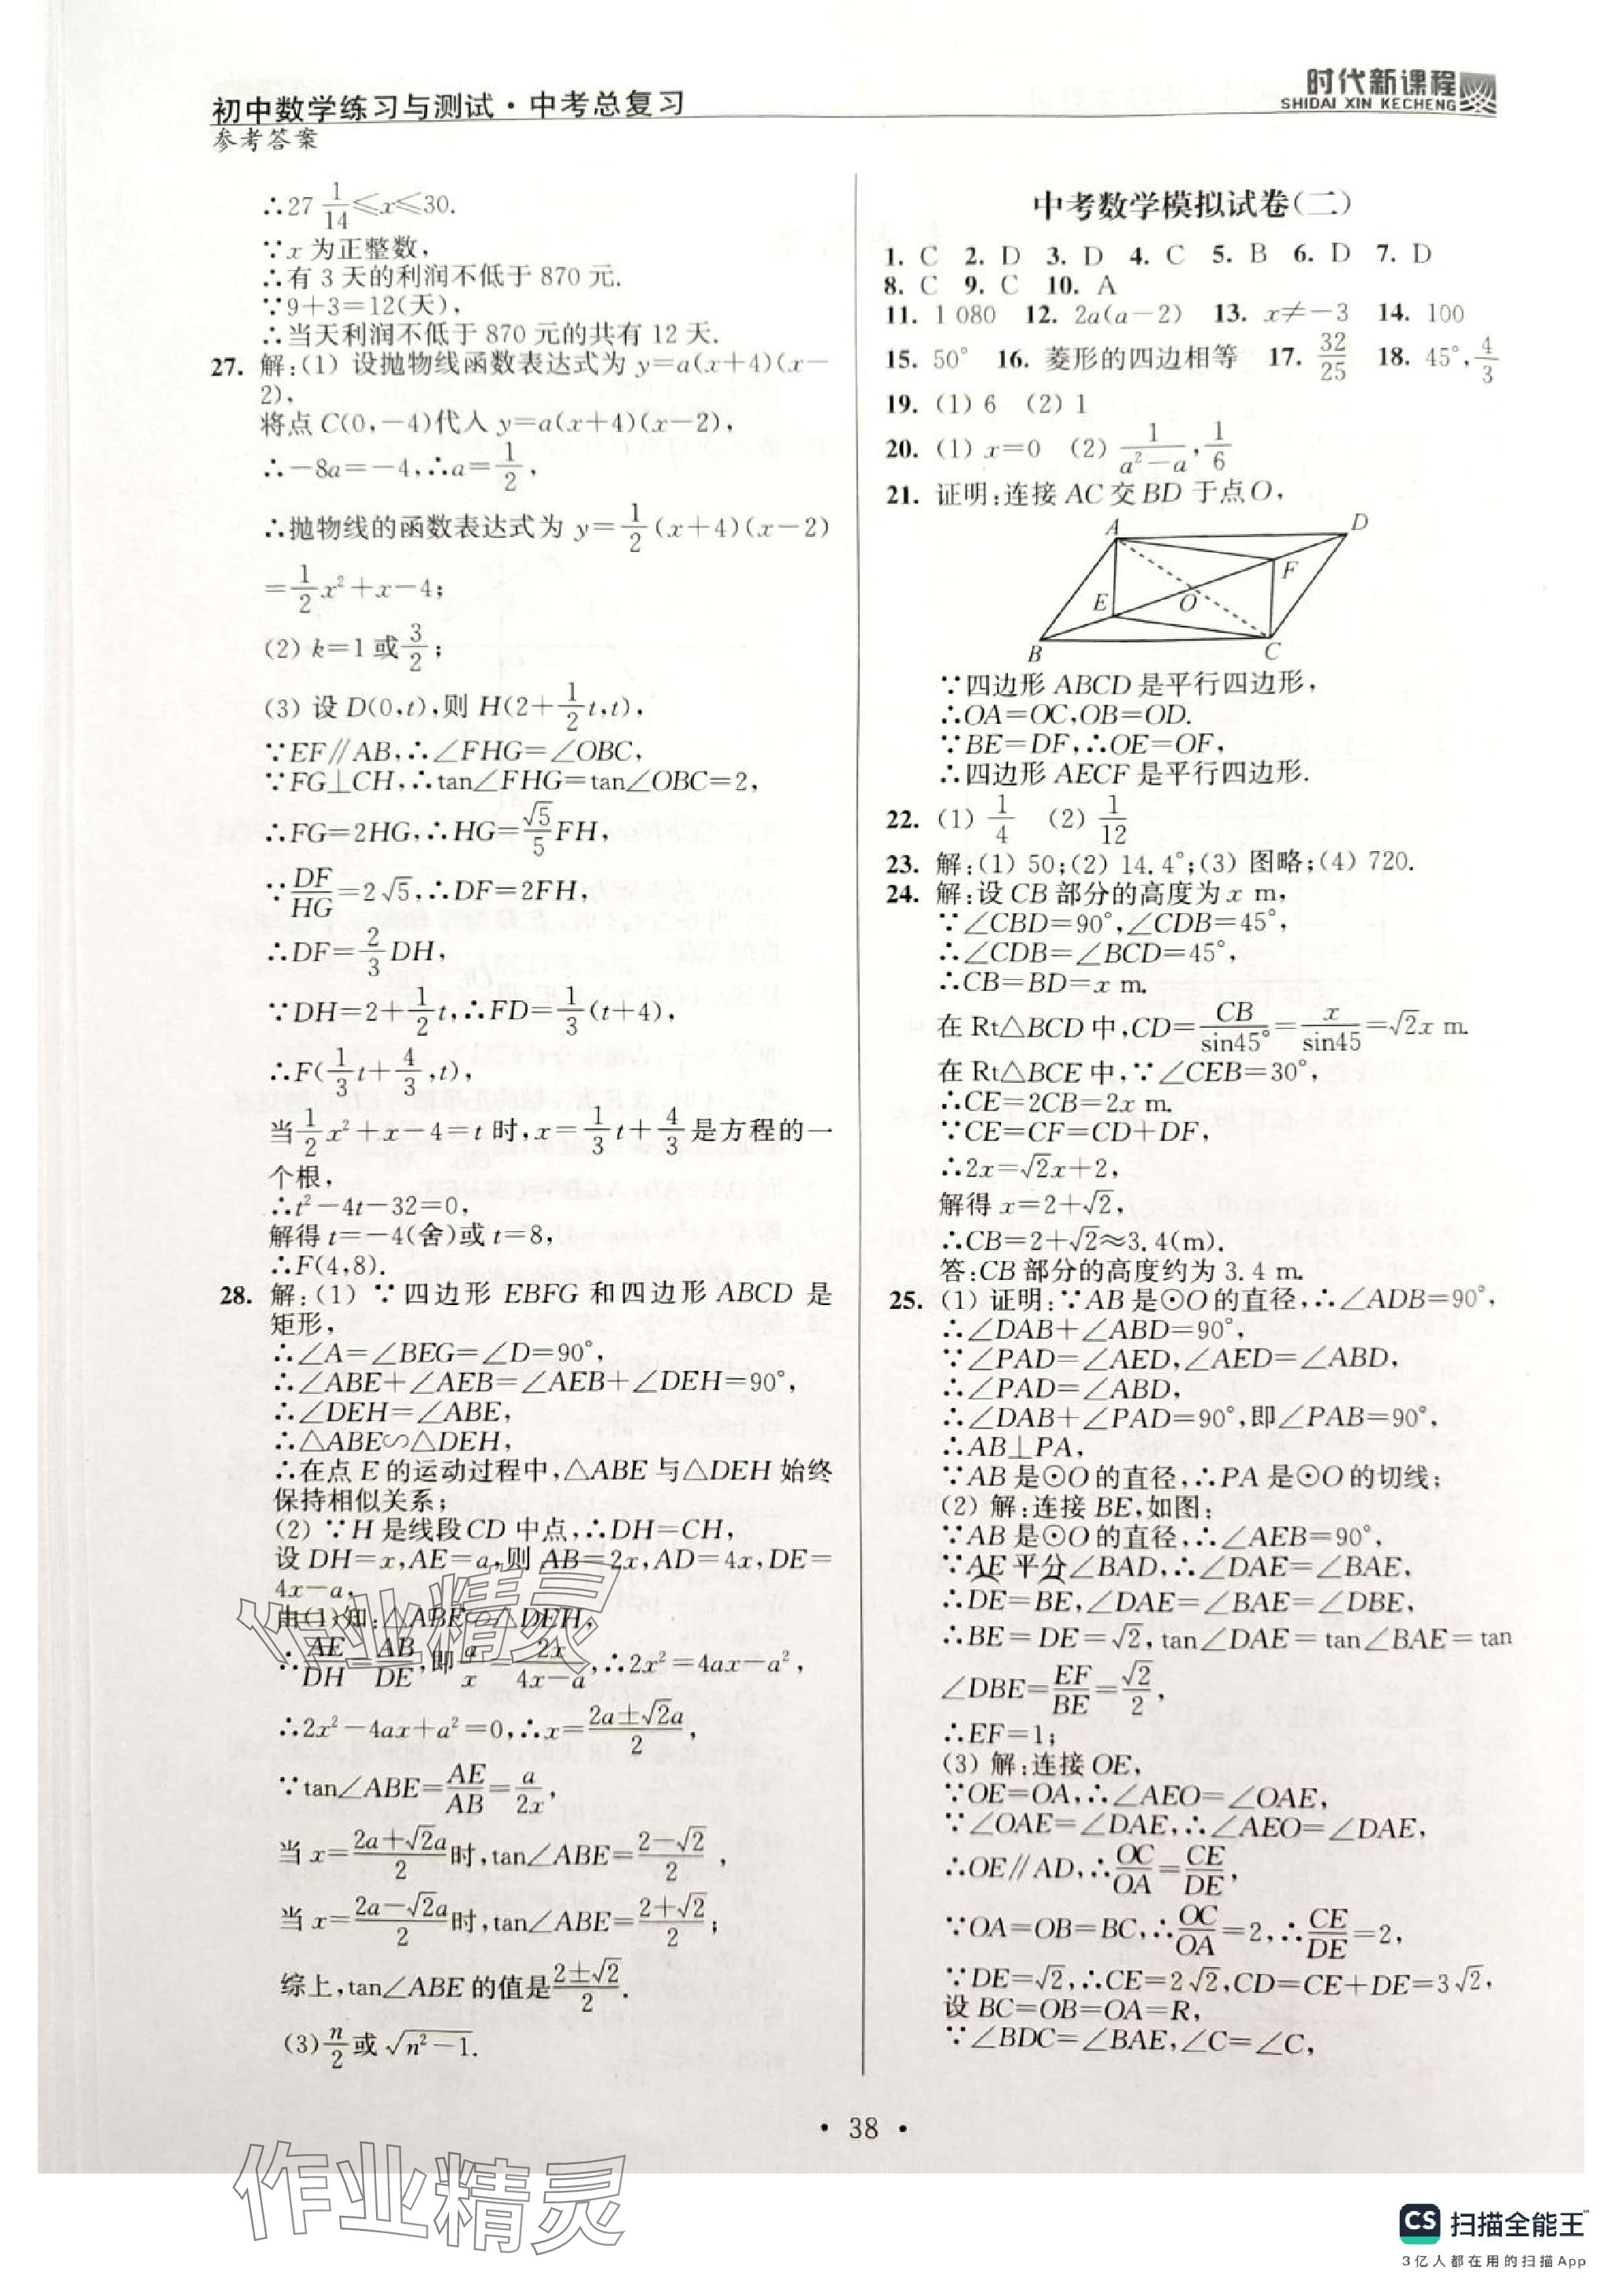 初中数学练习与测试·中考总复习
参考答案
时代新课程
SHIDAI XIN KECHENG
∴27 1/14≤x≤30.
∵x 为正整数,
∴有 3 天的利润不低于 870 元.
∵9+3=12(天),
∴当天利润不低于 870 元的共有 12 天.
27. 解:(1) 设抛物线函数表达式为 y=a(x+4)(x-
2),
将点 C(0,-4)代入 y=a(x+4)(x-2),
∴-8a=-4,∴a=1/2,
∴抛物线的函数表达式为 y=1/2(x+4)(x-2)
=1/2x²+x-4;
(2) k=1 或3/2;
(3) 设 D(0,t),则 H(2+1/2t,t),
∵EF∥AB,∴∠FHG=∠OBC,
∵FG⊥CH,∴tan∠FHG=tan∠OBC=2,
∴FG=2HG,∴HG=√5/5FH,
∵DF/HG=2√5,∴DF=2FH,
∴DF=2/3DH,
∵DH=2+1/2t,∴FD=1/3(t+4),
∴F(1/3t+4/3,t),
当1/2x²+x-4=t 时,x=1/3t+4/3是方程的一
个根,
∴t²-4t-32=0,
解得 t=-4(舍)或 t=8,
∴F(4,8).
28. 解:(1) ∵四边形 EBFG 和四边形 ABCD 是
矩形,
∴∠A=∠BEG=∠D=90°,
∴∠ABE+∠AEB=∠AEB+∠DEH=90°,
∴∠DEH=∠ABE,
∴△ABE∽△DEH,
∴在点 E 的运动过程中,△ABE 与△DEH 始终
保持相似关系;
(2) ∵H 是线段 CD 中点,∴DH=CH,
设 DH=x,AE=a,则 AB=2x,AD=4x,DE=
4x-a,
由(1)知:△ABE∽△DEH,
∴AE/DH=AB/DE,即a/x=2x/(4x-a),∴2x²=4ax-a²,
∴2x²-4ax+a²=0,∴x=(2a±√2a)/2,
∵tan∠ABE=AE/AB=a/2x,
当 x=(2a+√2a)/2时,tan∠ABE=(2-√2)/2,
当 x=(2a-√2a)/2时,tan∠ABE=(2+√2)/2;
综上,tan∠ABE 的值是(2±√2)/2.
(3)n/2或√(n²-1).
中考数学模拟试卷(二)
1. C 2. D 3. D 4. C 5. B 6. D 7. D
8. C 9. C 10. A
11. 1 080 12. 2a(a-2) 13. x≠-3 14. 100
15. 50° 16. 菱形的四边相等 17. 32/25 18. 45°,4/3
19. (1) 6 (2) 1
20. (1) x=0 (2) 1/(a²-a),1/6
21. 证明:连接 AC 交 BD 于点 O,
A
D
F
E
O
B
C
∵四边形 ABCD 是平行四边形,
∴OA=OC,OB=OD.
∵BE=DF,∴OE=OF,
∴四边形 AECF 是平行四边形.
22. (1) 1/4 (2) 1/12
23. 解:(1) 50;(2) 14.4°;(3) 图略;(4) 720.
24. 解:设 CB 部分的高度为 x m,
∵∠CBD=90°,∠CDB=45°,
∴∠CDB=∠BCD=45°,
∴CB=BD=x m.
在 Rt△BCD 中,CD=CB/sin45°=x/sin45=√2x m.
在 Rt△BCE 中,∵∠CEB=30°,
∴CE=2CB=2x m.
∵CE=CF=CD+DF,
∴2x=√2x+2,
解得 x=2+√2,
∴CB=2+√2≈3.4(m).
答:CB 部分的高度约为 3.4 m.
25. (1) 证明:∵AB 是⊙O 的直径,∴∠ADB=90°,
∴∠DAB+∠ABD=90°,
∵∠PAD=∠AED,∠AED=∠ABD,
∴∠PAD=∠ABD,
∴∠DAB+∠PAD=90°,即∠PAB=90°,
∴AB⊥PA,
∵AB 是⊙O 的直径,∴PA 是⊙O 的切线;
(2) 解:连接 BE,如图:
∵AB 是⊙O 的直径,∴∠AEB=90°,
∵AE 平分∠BAD,∴∠DAE=∠BAE,
∴DE=BE,∠DAE=∠BAE=∠DBE,
∴BE=DE=√2,tan∠DAE=tan∠BAE=tan
∠DBE=EF/BE=√2/2,
∴EF=1;
(3) 解:连接 OE,
∵OE=OA,∴∠AEO=∠OAE,
∵∠OAE=∠DAE,∴∠AEO=∠DAE,
∴OE∥AD,∴OC/OA=CE/DE,
∵OA=OB=BC,∴OC/OA=2,∴CE/DE=2,
∵DE=√2,∴CE=2√2,CD=CE+DE=3√2,
设 BC=OB=OA=R,
∵∠BDC=∠BAE,∠C=∠C,
·38·
作业精灵
作业精灵
CS 扫描全能王™
3亿人都在用的扫描App